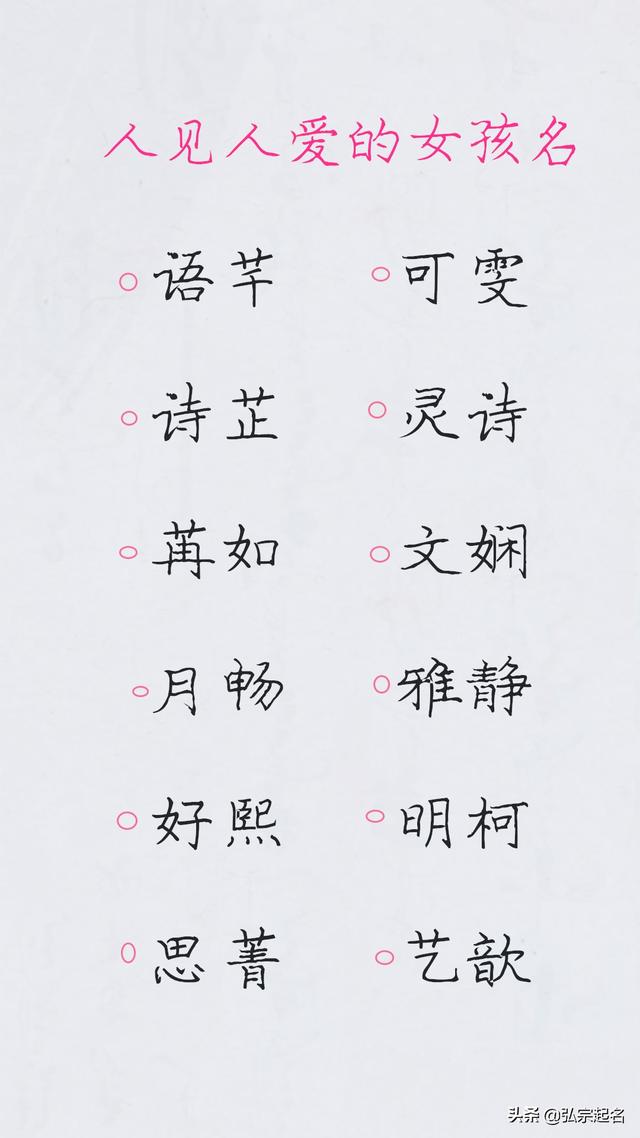 人见人爱的女孩名
语芊 可雯
诗芷 灵诗
苒如 文娴
月畅 雅静
好熙 明柯
思菁 艺歆
头条 @弘宗起名